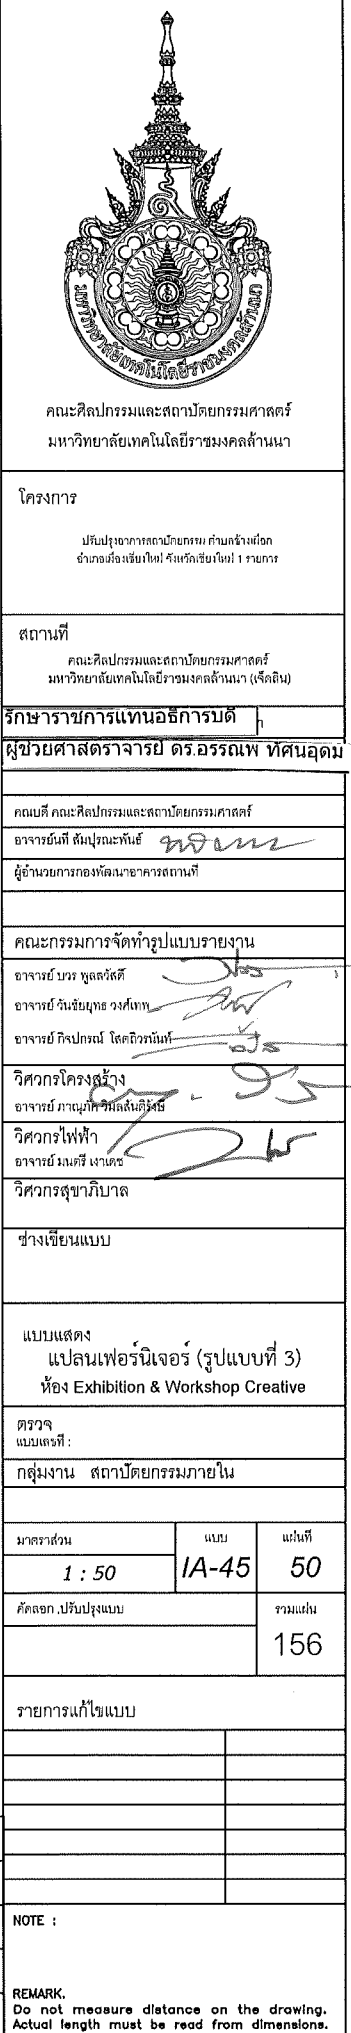 มหาวิทยาลัยเทคโนโลยีราชมงคลล้านนา
คณะศิลปกรรมและสถาปัตยกรรมศาสตร์
มหาวิทยาลัยเทคโนโลยีราชมงคลล้านนา
โครงการ
ปรับปรุงอาคารสถาปัตยกรรม ตำบลช้างเผือก
อำเภอเมืองเชียงใหม่ จังหวัดเชียงใหม่ 1 รายการ
สถานที่
คณะศิลปกรรมและสถาปัตยกรรมศาสตร์
มหาวิทยาลัยเทคโนโลยีราชมงคลล้านนา (เจ็ดลิน)
รักษาราชการแทนอธิการบดี
ผู้ช่วยศาสตราจารย์ ดร.อรรณพ ทัศนอุดม
คณบดี คณะศิลปกรรมและสถาปัตยกรรมศาสตร์
อาจารย์นที สัมปุรณะพันธ์
ผู้อำนวยการกองพัฒนาอาคารสถานที่
คณะกรรมการจัดทำรูปแบบรายงาน
อาจารย์ บวร พูลสวัสดิ์
อาจารย์ วันชัยยุทธ วงศ์เทพ
อาจารย์ กิจปกรณ์
วิศวกรโครงสร้าง
อาจารย์ ภาณุภัค
วิศวกรไฟฟ้า
อาจารย์ มนตรี เงาเดช
วิศวกรสุขาภิบาล
ช่างเขียนแบบ
แบบแสดง
แปลนเฟอร์นิเจอร์ (รูปแบบที่ 3)
ห้อง Exhibition & Workshop Creative
ตรวจ
แบบเลขที่ :
กลุ่มงาน สถาปัตยกรรมภายใน
มาตราส่วน แบบ แผ่นที่
1 : 50 IA-45 50
คัดลอก ,ปรับปรุงแบบ รวมแผ่น
156
รายการแก้ไขแบบ
NOTE :
REMARK.
Do not measure distance on the drawing.
Actual length must be read from dimensions.